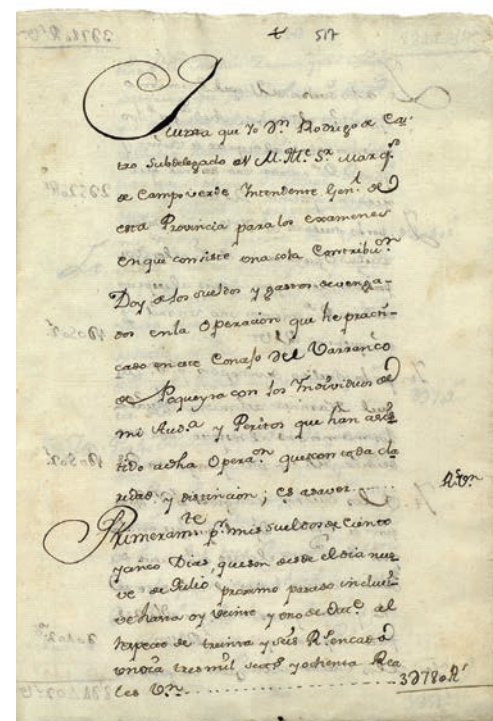 517
Quenta que Yo Dn Rodrigo de Cas
tro Subdelegado del M. Ille Sr Marqs
de Campo verde Intendente Genl de
esta Provincia para los examenes
en que consiste una sola Contribuon
Doy de los sueldos y gastos devenga-
dos enla Operacion que he practi-
cado en este Concejo del Varranco
de Poqueyra con los Individuos de
mi Auda y Peritos que han asis
tido adha Operaon que es con toda cla
ridad y distincion; es asaver
Rs Vn
Primeramte pr mis sueldos de Ciento
y cinco Dias, que son desde el dia nue
ve de Julio proximo pasado inclusi
ve hasta oy veinte y uno de Octe al
respecto de treinta y seis Rs encada
un dia tres mil setts y ochenta Rea
les Vn
3D780 Rs